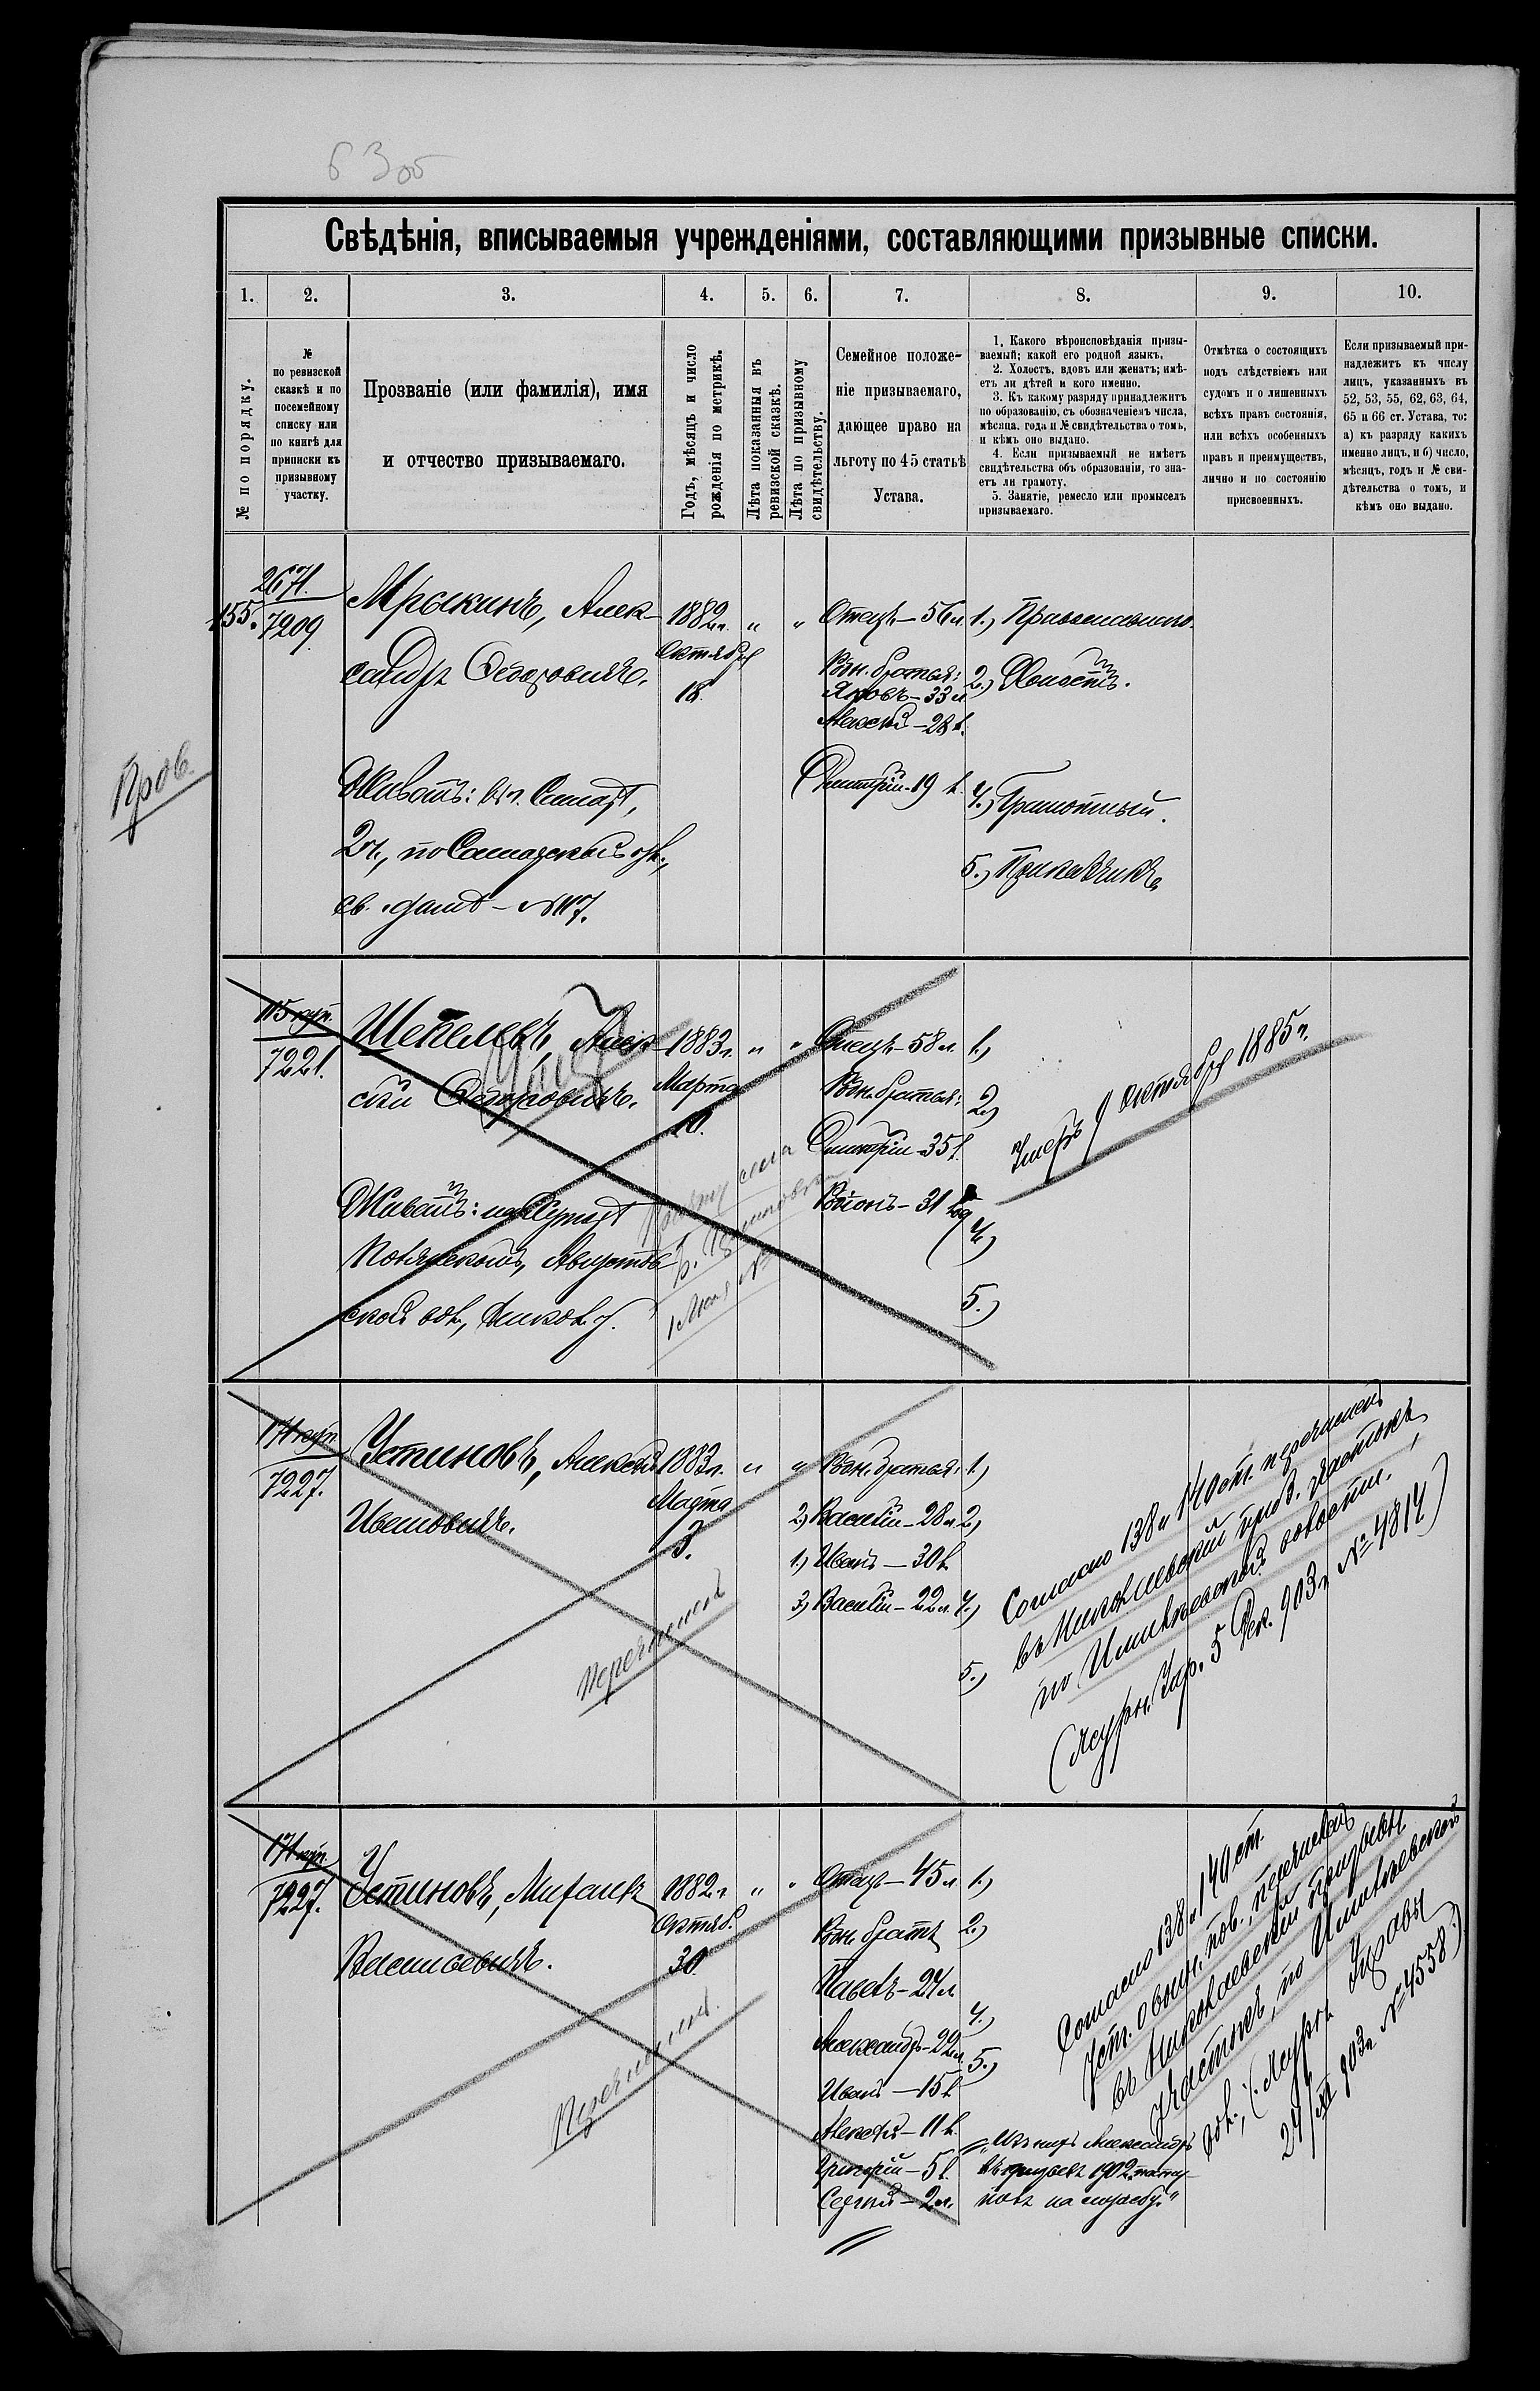 63об
Свѣдѣнія, вписываемыя учрежденіями, составляющими призывные списки.
1. 2. 3. 4. 5. 6. 7. 8. 9. 10.
№ по порядку.
№
по ревизской
сказкѣ и по
посемейному
списку или
по книгѣ для
приписки къ
призывному
участку.
Прозваніе (или фамилія), имя
и отчество призываемаго.
Годъ, мѣсяцъ и число
рожденія по метрикѣ.
Лѣта показанныя въ
ревизской сказкѣ.
Лѣта по призывному
свидѣтельству.
Семейное положе-
ніе призываемаго,
дающее право на
льготу по 45 статьѣ
Устава.
1. Какого вѣроисповѣданія призы-
ваемый; какой его родной языкъ.
2. Холостъ, вдовъ или женатъ; имѣ-
етъ ли дѣтей и кого именно.
3. Къ какому разряду принадлежитъ
по образованію, съ обозначеніемъ числа,
мѣсяца, года и № свидѣтельства о томъ,
и кѣмъ оно выдано.
4. Если призываемый не имѣетъ
свидѣтельства объ образованіи, то зна-
етъ ли грамоту.
5. Занятіе, ремесло или промыселъ
призываемаго.
Отмѣтка о состоящихъ
подъ слѣдствіемъ или
судомъ и о лишенныхъ
всѣхъ правъ состоянія,
или всѣхъ особенныхъ
правъ и преимуществъ,
лично и по состоянію
присвоенныхъ.
Если призываемый при-
надлежитъ къ числу
лицъ, указанныхъ въ
52, 53, 55, 62, 63, 64,
65 и 66 ст. Устава, то:
а) къ разряду какихъ
именно лицъ, и б) число,
мѣсяцъ, годъ и № сви-
дѣтельства о томъ, и
кѣмъ оно выдано.
Пров.
155.
2671.
7209
Мрыкинъ, Алек-
сандръ Ѳедоровичъ.
Живетъ: въ г. Самарѣ,
2 ч., по Самарской ул.,
св. домъ - № 117.
1882 г.
Октября
18.
" "
Отецъ - 56 л.
Родн. братья:
Яковъ - 33 л.
Алексѣй - 28 л.
Дмитрій - 19 л.
1.) Православнаго.
2.) Холостъ.
4.) Грамотный.
5.) Приказчикъ.
115 куп.
7221.
Шепелевъ, Алек-
сѣй Ѳедоровичъ.
Живетъ: на хуторѣ
вол, Никол. у.
1883 г.
Марта
10.
" "
Отецъ - 58 л.
Родн. братья:
Дмитрій - 35 л.
- 31 год
1.)
2.)
4.)
5.)
Умеръ 9 октября 1885 г.
171 куп.
7227.
Устиновъ, Алексѣй
Ивановичъ.
1883 г.
Марта
3.
" "
Родн. братья:
2) Василій - 28 л.
1) Иванъ - 30 л.
3) Василій - 22 л.
1.)
2.)
4.)
5.)
Перечисленъ
Согласно 138 и 140 ст. перечисленъ
въ Николаевскій приз. участокъ,
по Имилѣевской волости.
(Журн. Упр. 5 Дек. 903 г. № 4814)
171 куп.
7227.
Устиновъ, Михаилъ
Васильевичъ.
1882 г.
Октяб.
30.
" "
Отецъ - 45 л.
Родн. братъ
Павелъ - 24 л.
Александръ - 22 л.
Иванъ - 15 л.
Алексѣй - 11 л.
Григорій - 5 л.
Сергѣй - 2 л.
1.)
2.)
4.)
5.)
Перечисленъ.
Согласно 138 и 140 ст.
Уст. о воин. пов., перечисленъ
въ Николаевскій призывн.
участокъ, по Имилѣевской
вол., (Журн. Управы
24/XI 903 г. № 4558.)
"Изъ нихъ Александръ
въ призывъ 1902 г. посту-
пилъ на службу."